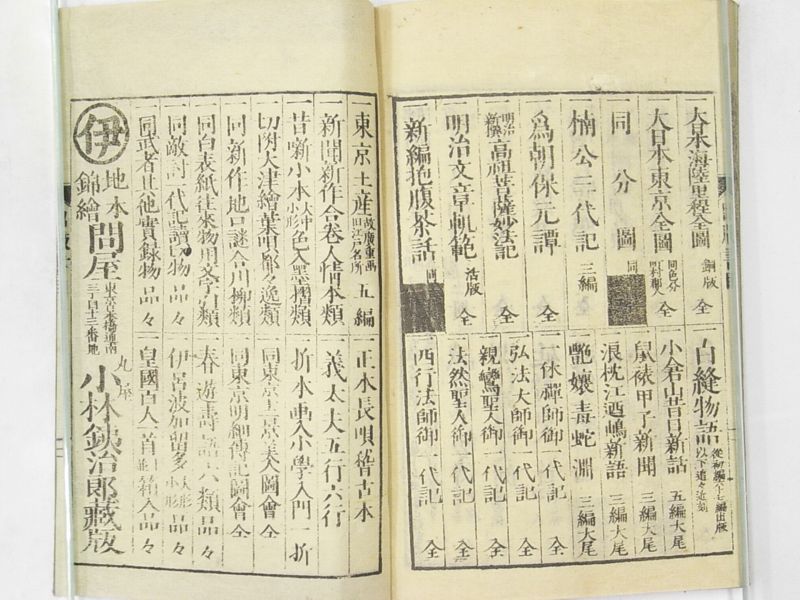 大日本海陸里程全圖 銅版 全
大日本東京全圖 同色分 町村獨人 全
同分圖 同
楠公三代記 三編
爲朝保元譚 全
明治新撰 高祖菩薩妙法記 全
明治文章軌範 活版 全
新編抱腹茶話 同
白縫物語 從初編六十七編出版 以下追々近刻
小倉山昔日新話 五編大尾
鼠裱甲子新聞 三編大尾
浪枕江酉嶋新語 三編大尾
艶嬢毒蛇淵 三編大尾
一休禪師御一代記 全
弘法大師御一代記 全
親鸞聖人御一代記 全
法然聖人御一代記 全
西行法師御一代記 全
一東京土産 故廣重画 旧江戸名所 五編
一新聞新作合巻人情本類
一昔噺小本 大中小形 色入墨摺類
一切附大津繪葉唄都々逸類
一同新作地口謎合川柳類
一同白表紙往來物用文字引類
一同敵討一代記讀切物品々
一同武者其他實録物品々
一正本長唄稽古本
一義太夫五行六行
一折本画入小學入門一折
一同東京三十六京美人圖會 全
一同東京明細傳記圖會 全
一春遊壽語六類品々
一伊呂波加留多 大形小形 品々
一皇國百人一首 箱入品々
伊
地本
錦繪
問屋
東京日本橋通南
三丁目十三番地
丸屋
小林鉄治郎藏版